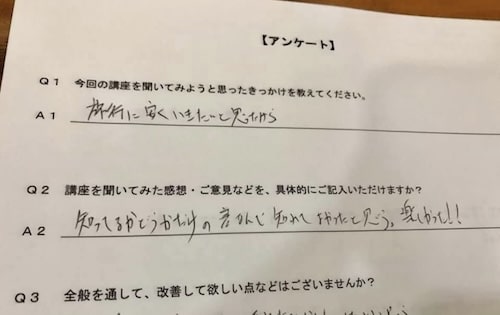 【アンケート】
Q1 今回の講座を聞いてみようと思ったきっかけを教えてください。
A1 旅行に安くいきたいと思ったから
Q2 講座を聞いてみた感想・ご意見などを、具体的にご記入いただけますか?
A2 知ってるかどうかだけの 知れてよかったと思う。楽しかった!!
Q3 全般を通して、改善して欲しい点などはございませんか?